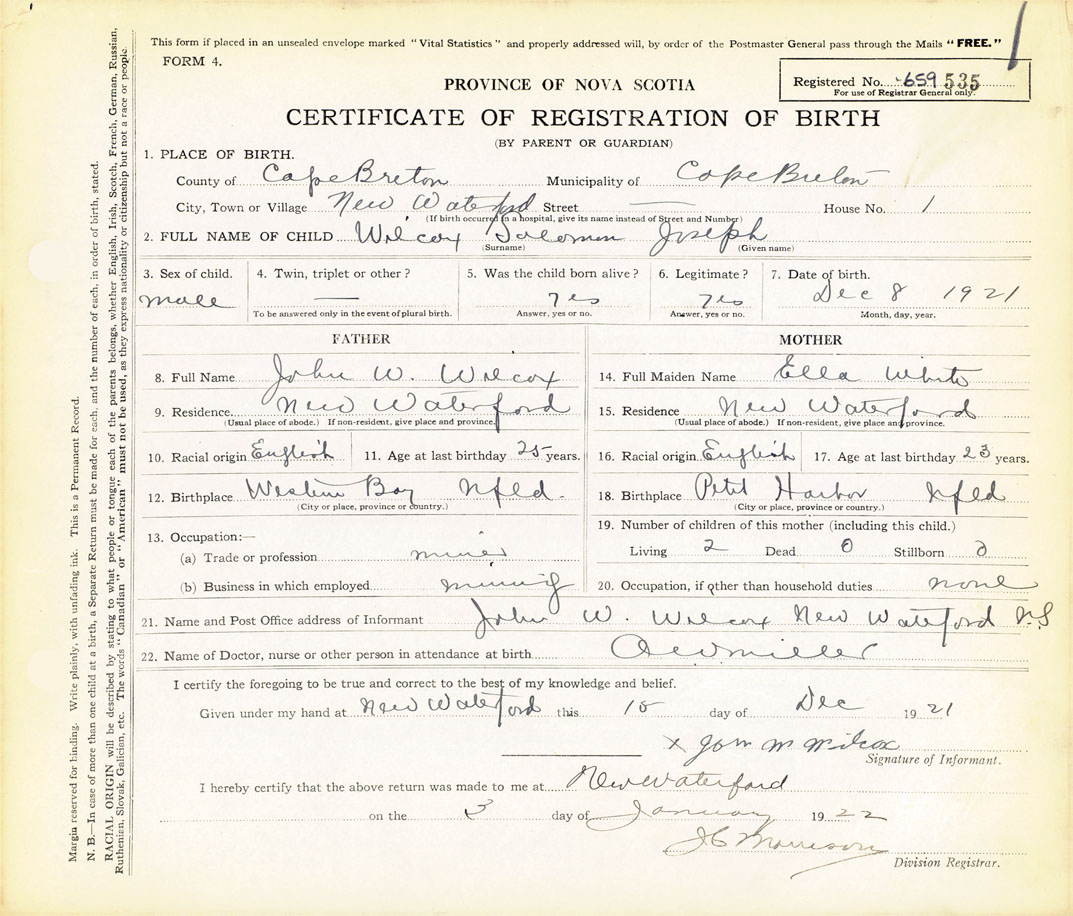 This form if placed in an unsealed envelope marked "Vital Statistics" and properly addressed will, by order of the Postmaster General pass through the Mails "FREE."
FORM 4.
Registered No. 659 535
For use of Registrar General only.
PROVINCE OF NOVA SCOTIA
CERTIFICATE OF REGISTRATION OF BIRTH
(BY PARENT OR GUARDIAN)
1. PLACE OF BIRTH.
County of Cape Breton Municipality of Cape Breton
City, Town or Village New Waterford Street — House No. 1
(If birth occurred in a hospital, give its name instead of Street and Number)
2. FULL NAME OF CHILD Wilcox Solomon Joseph
(Surname) (Given name)
3. Sex of child. 4. Twin, triplet or other? 5. Was the child born alive? 6. Legitimate? 7. Date of birth.
male — yes yes Dec 8 1921
To be answered only in the event of plural birth. Answer, yes or no. Answer, yes or no. Month, day, year.
FATHER MOTHER
8. Full Name John W. Wilcox 14. Full Maiden Name Ella White
9. Residence New Waterford 15. Residence New Waterford
(Usual place of abode.) If non-resident, give place and province. (Usual place of abode.) If non-resident, give place and province.
10. Racial origin English 11. Age at last birthday 25 years. 16. Racial origin English 17. Age at last birthday 23 years.
12. Birthplace Western Bay Nfld. 18. Birthplace Petit Harbor Nfld
(City or place, province or country.) (City or place, province or country.)
13. Occupation:— 19. Number of children of this mother (including this child.)
(a) Trade or profession miner Living 2 Dead 0 Stillborn 0
(b) Business in which employed mining 20. Occupation, if other than household duties none
21. Name and Post Office address of Informant John W. Wilcox New Waterford N.S
22. Name of Doctor, nurse or other person in attendance at birth Miller
I certify the foregoing to be true and correct to the best of my knowledge and belief.
Given under my hand at New Waterford this 10 day of Dec 1921
x John W Wilcox
Signature of Informant.
I hereby certify that the above return was made to me at New Waterford
on the 3 day of January 1922
J C Morrison
Division Registrar.
Margin reserved for binding. Write plainly, with unfading ink. This is a Permanent Record.
N. B.—In case of more than one child at a birth, a Separate Return must be made for each, and the number of each, in order of birth, stated.
RACIAL ORIGIN will be described by stating to what people or tongue each of the parents belongs, whether English, Irish, Scotch, French, German, Russian,
Ruthenian, Slovak, Galician, etc. The words "Canadian" or "American" must not be used, as they express nationality or citizenship but not a race or people.